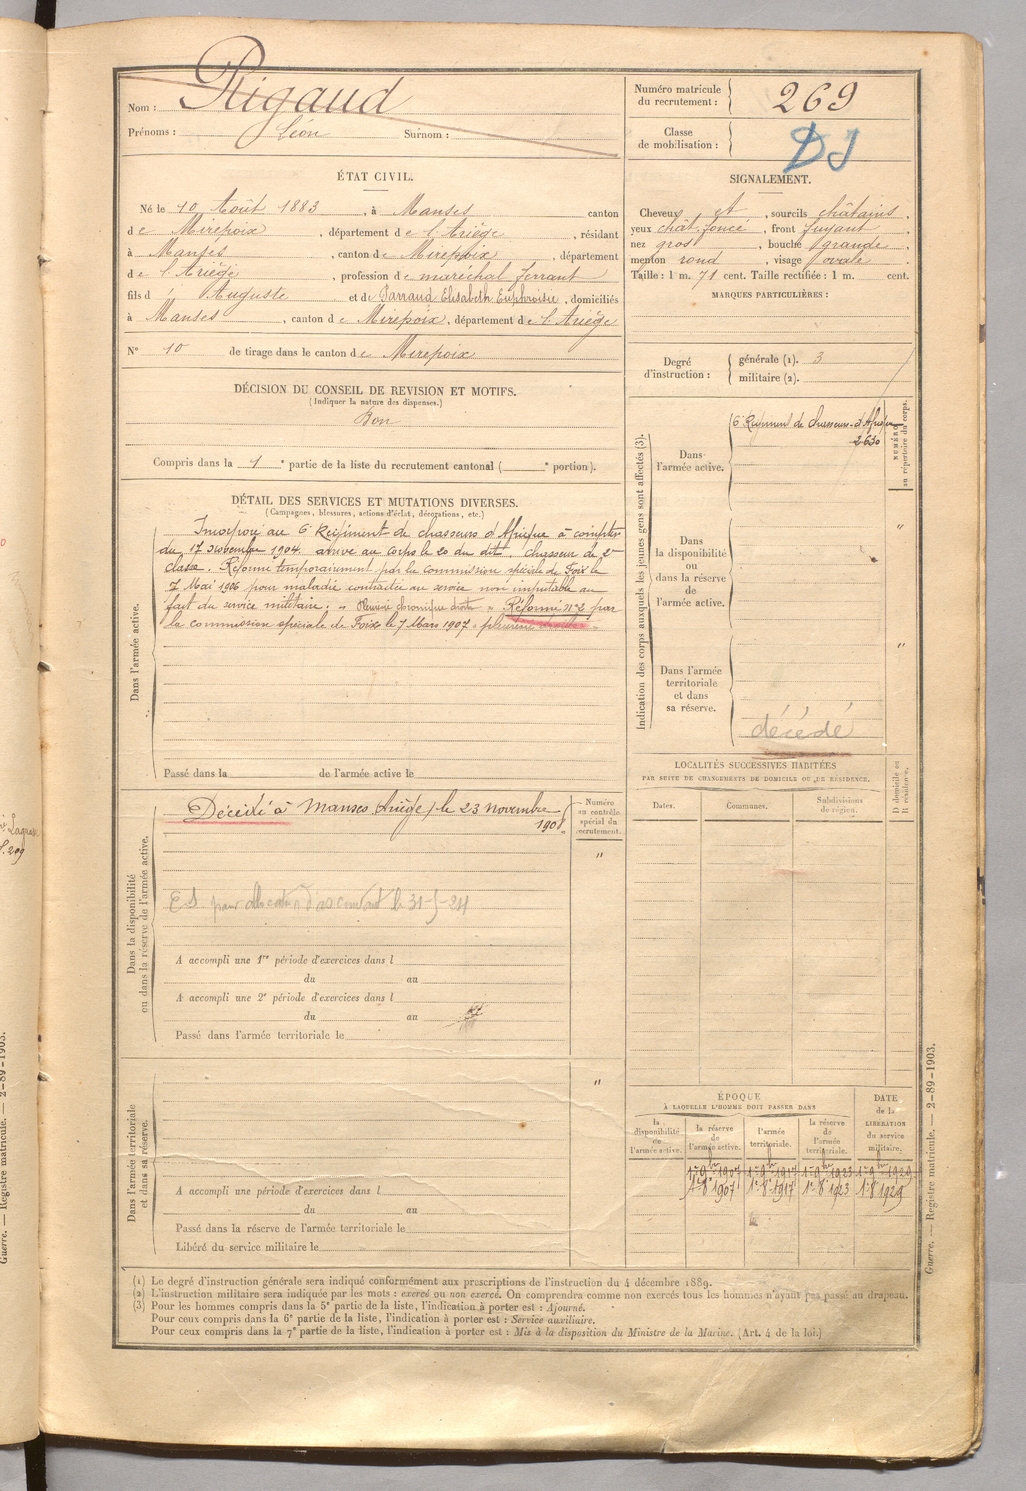 Nom : Rigaud
Prénoms : Léon Surnom :
Numéro matricule du recrutement : 269
Classe de mobilisation :
DJ
ÉTAT CIVIL.
Né le 10 Août 1883, à Manses canton
de Mirepoix, département de l'Ariège, résidant
à Manses, canton de Mirepoix, département
de l'Ariège, profession de maréchal ferrant
fils d'Auguste et de Parraud Elisabeth Euphroisie, domiciliés
à Manses, canton de Mirepoix, département de l'Ariège
N° 10 de tirage dans le canton de Mirepoix
SIGNALEMENT.
Cheveux et, sourcils châtains,
yeux chât. foncé, front fuyant,
nez gros, bouche grande,
menton rond, visage ovale.
Taille : 1 m. 71 cent. Taille rectifiée : 1 m. cent.
MARQUES PARTICULIÈRES :
Degré d'instruction : générale (1). 3
militaire (2).
DÉCISION DU CONSEIL DE REVISION ET MOTIFS.
(Indiquer la nature des dispenses.)
Bon
Compris dans la 1e partie de la liste du recrutement cantonal ( e portion).
DÉTAIL DES SERVICES ET MUTATIONS DIVERSES.
(Campagnes, blessures, actions d'éclat, décorations, etc.)
Dans l'armée active.
Incorporé au 6e Régiment de chasseurs d'Afrique à compter
du 17 novembre 1904. arrivé au corps le 20 du dit, chasseur de 2e
classe. Réformé temporairement par la commission spéciale de Foix le
7 Mai 1906 pour maladie contractée au service non imputable au
fait du service militaire : « Pleurésie chronique droite » Réformé n° 2 par
la commission spéciale de Foix le 7 Mars 1907 « pleurésie
Passé dans la de l'armée active le
Indication des corps auxquels les jeunes gens sont affectés (3).
NUMÉRO au répertoire du corps.
Dans l'armée active.
6e Régiment de chasseurs d'Afrique
2630
Dans la disponibilité ou dans la réserve de l'armée active.
"
Dans l'armée territoriale et dans sa réserve.
"
décédé
LOCALITÉS SUCCESSIVES HABITÉES
PAR SUITE DE CHANGEMENTS DE DOMICILE OU DE RÉSIDENCE.
Dates. Communes. Subdivisions de région. D domicile ou R résidence.
Dans la disponibilité ou dans la réserve de l'armée active.
Numéro au contrôle spécial du recrutement.
"
Décédé à Manses (Ariège) le 23 novembre
1908.
E S pour allocation d'ascendant le 31-5-24
A accompli une 1re période d'exercices dans l
du au
A accompli une 2e période d'exercices dans l
du au
Passé dans l'armée territoriale le
Dans l'armée territoriale et dans sa réserve.
"
A accompli une période d'exercices dans l
du au
Passé dans la réserve de l'armée territoriale le
Libéré du service militaire le
ÉPOQUE
À LAQUELLE L'HOMME DOIT PASSER DANS
la disponibilité de l'armée active. la réserve de l'armée active. l'armée territoriale. la réserve de l'armée territoriale. DATE de la LIBÉRATION du service militaire.
1er 9bre 1907 1er 9bre 1917 1er 9bre 1923 1er 9bre 1929
1er 8e 1907 1er 8e 1917 1er 8e 1923 1er 8e 1929
(1) Le degré d'instruction générale sera indiqué conformément aux prescriptions de l'instruction du 4 décembre 1889.
(2) L'instruction militaire sera indiquée par les mots : exercé ou non exercé. On comprendra comme non exercés tous les hommes n'ayant pas passé au drapeau.
(3) Pour les hommes compris dans la 5e partie de la liste, l'indication à porter est : Ajourné.
Pour ceux compris dans la 6e partie de la liste, l'indication à porter est : Service auxiliaire.
Pour ceux compris dans la 7e partie de la liste, l'indication à porter est : Mis à la disposition du Ministre de la Marine. (Art. 4 de la loi.)
Guerre. — Registre matricule. — 2-89-1903.
Guerre. — Registre matricule. — 2-89-1903.